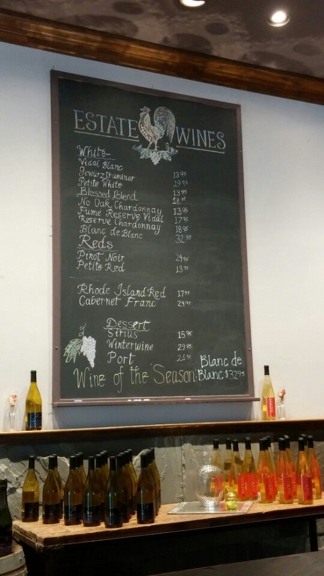 ESTATE WINES
White
Vidal Blanc 13.99
Gewurztraminer 19.99
Petite White 13.99
Blessed Blend
No Oak Chardonnay 13.99
Fumé Reserve Vidal 17.99
Reserve Chardonnay 18.99
Blanc de Blanc 32.99
Reds
Pinot Noir 24.99
Petite Red 13.99
Rhode Island Red 17.99
Cabernet Franc 24.99
Dessert
Sirius 15.99
Winterwine 29.99
Port
Wine of the Season: Blanc de
Blanc $32.99